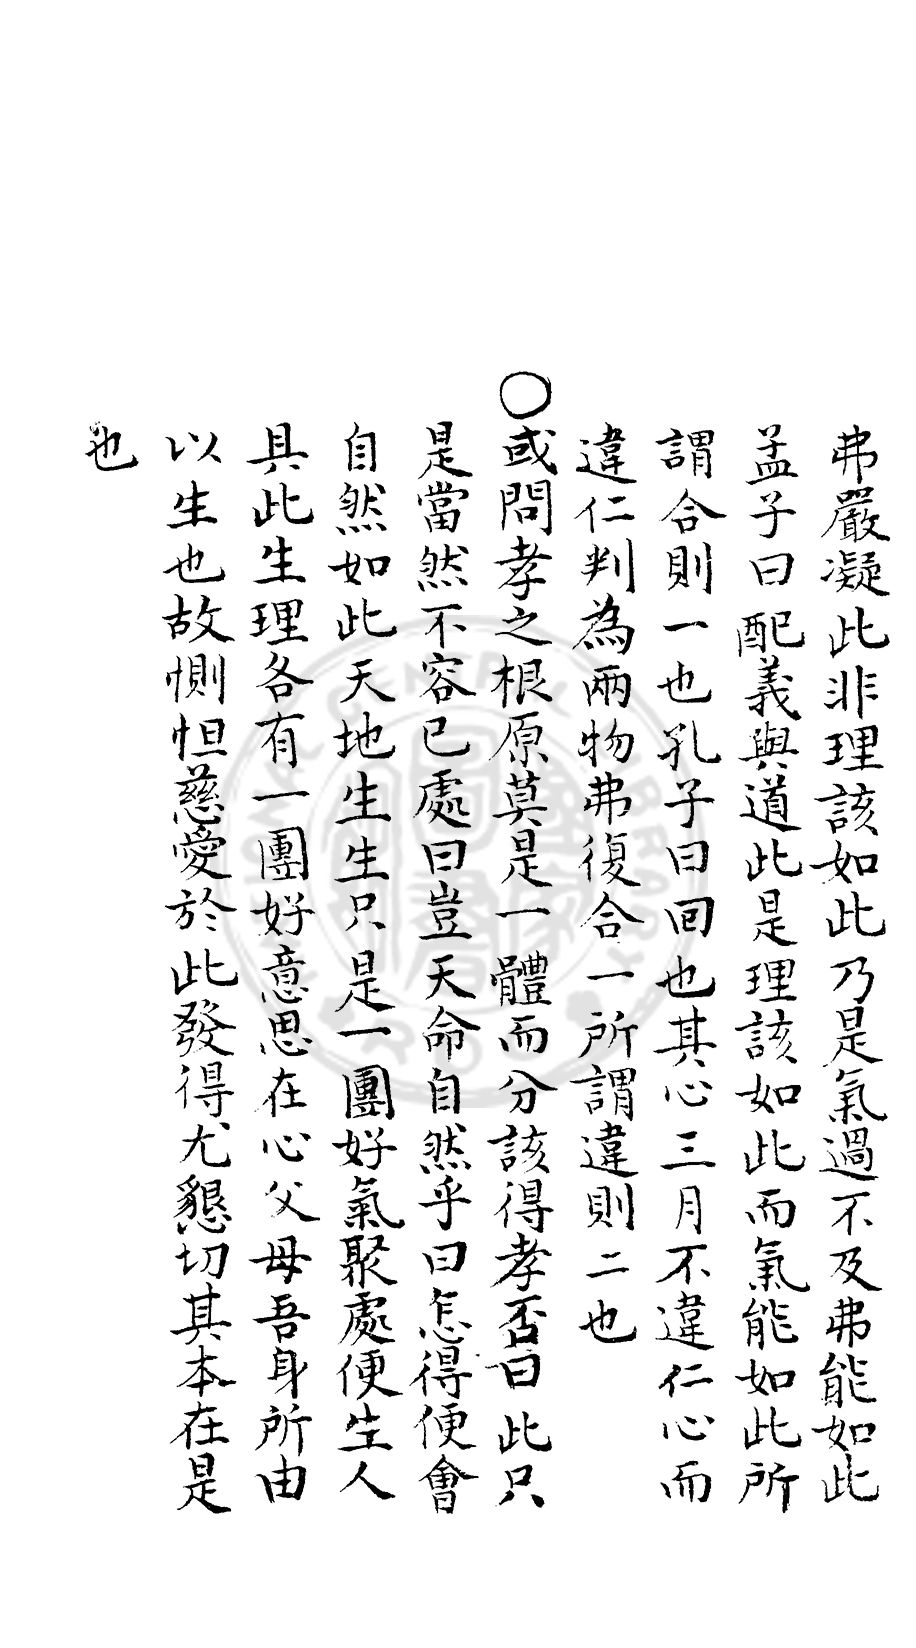 弗嚴凝此非理該如此乃是氣過不及弗能如此
孟子曰配義與道此是理該如此而氣能如此所
謂合則一也孔子曰回也其心三月不違仁心而
違仁判為兩物弗復合一所謂違則二也
○或問孝之根原莫是一體而分該得孝否曰此只
是當然不容已處曰豈天命自然乎曰怎得便會
自然如此天地生生只是一團好氣聚處便生人
具此生理各有一團好意思在心父母吾身所由
以生也故惻怛慈愛於此發得尤懇切其本在是
也